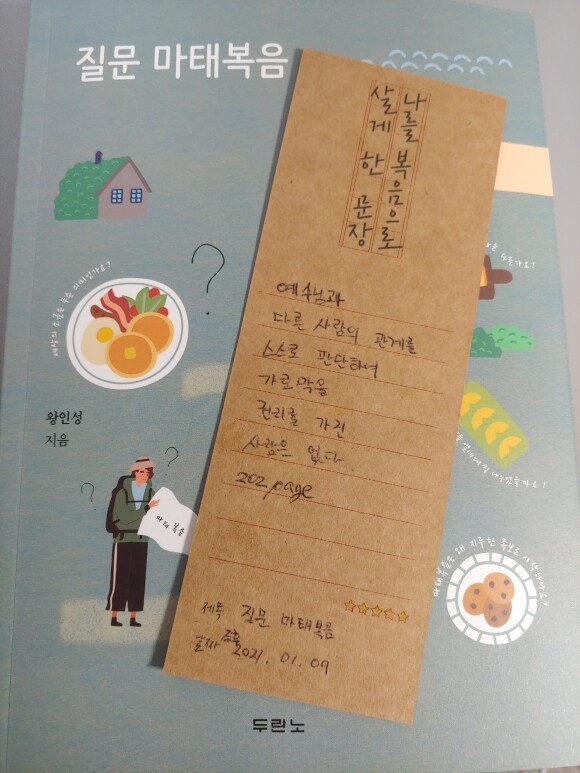 질문 마태복음
나를 복음으로
살게 한 문장
예수님과
다른 사람의 관계를
스스로 판단하여
가로막을
권리를 가진
사람은 없다.
202page
제목 질문 마태복음
날짜 2021. 01. 09
왕인성
지음
마태복음
마태복음은 왜 지루한 족보로 시작하나요?
두란노